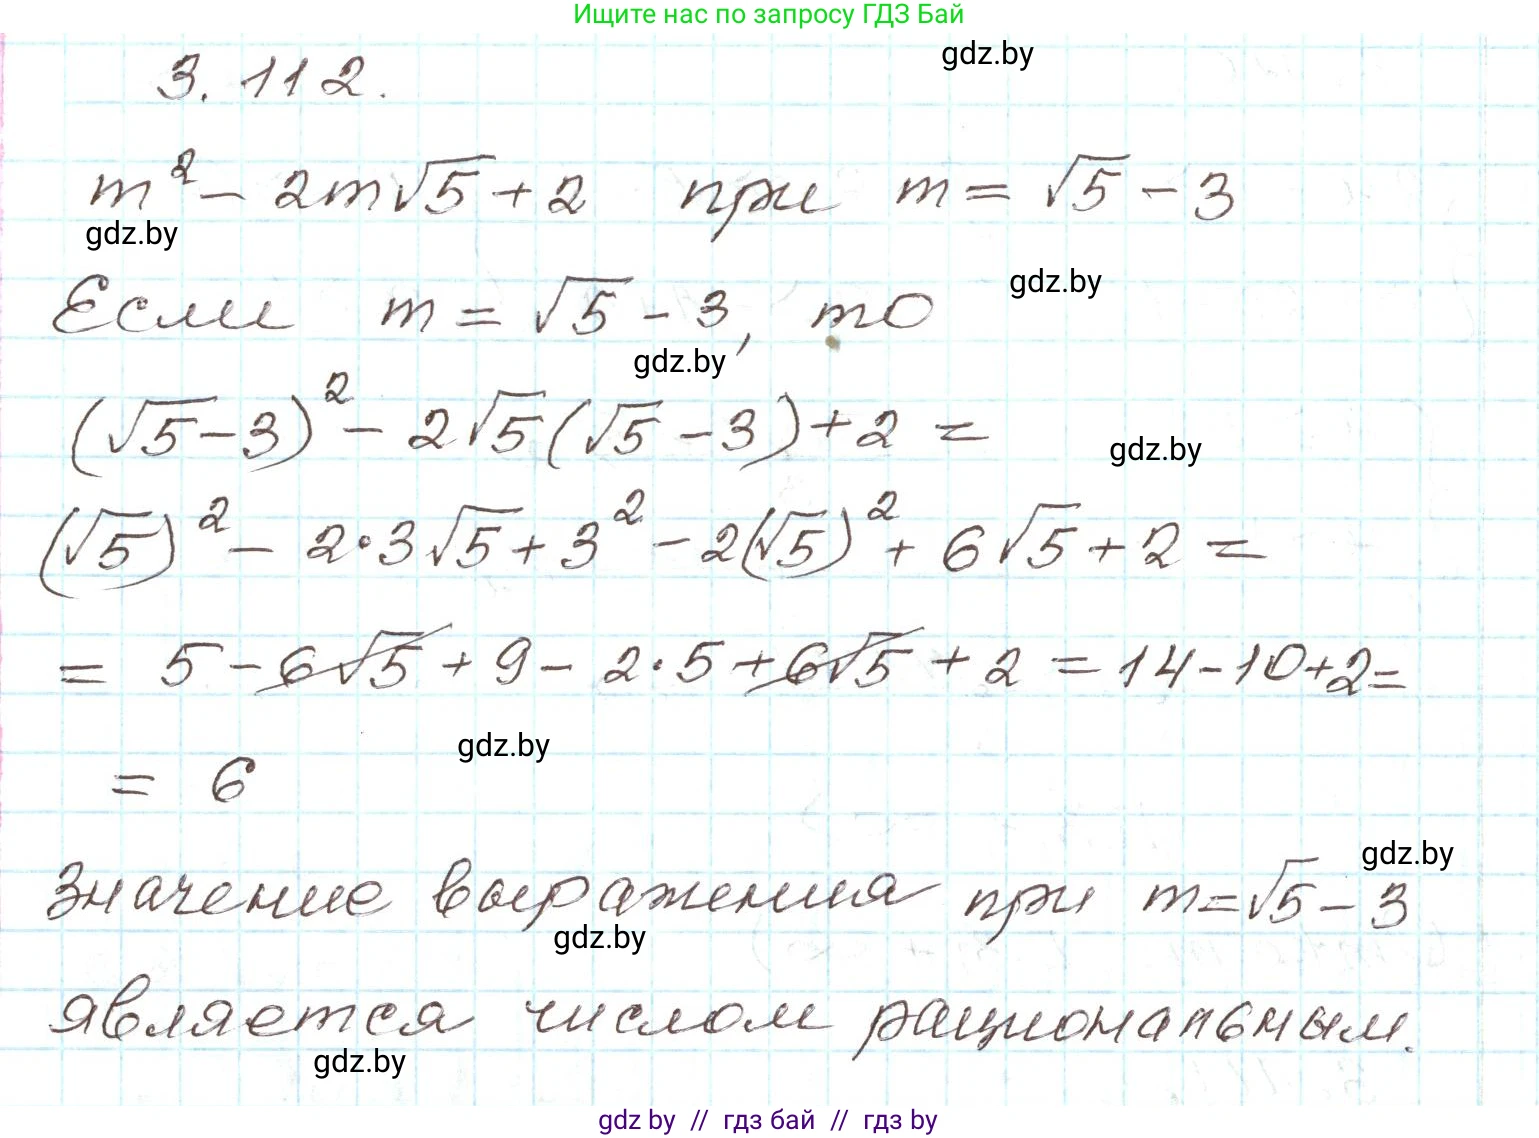 Ищите нас по запросу ГДЗ Бай
gdz.by
3.112.
m² - 2m√5 + 2 при m = √5 - 3
gdz.by
gdz.by
Если m = √5 - 3, то
gdz.by
(√5 - 3)² - 2√5(√5 - 3) + 2 =
gdz.by
(√5)² - 2·3√5 + 3² - 2(√5)² + 6√5 + 2 =
= 5 - 6√5 + 9 - 2·5 + 6√5 + 2 = 14 - 10 + 2 =
gdz.by
= 6
gdz.by
Значение выражения при m = √5 - 3
gdz.by
является числом рациональным.
gdz.by
gdz by // гдз бай // гдз by